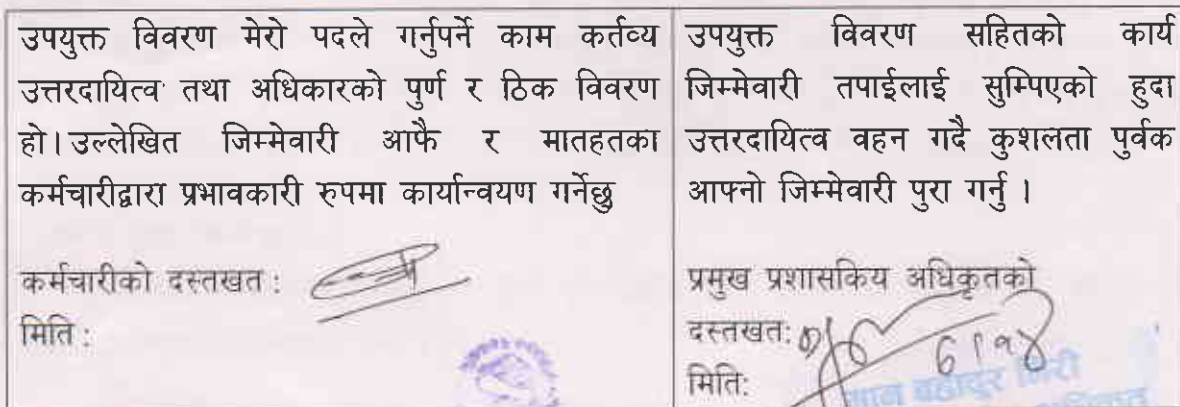 उपयुक्त विवरण मेरो पदले गर्नुपर्ने काम कर्तव्य
उत्तरदायित्व तथा अधिकारको पुर्ण र ठिक विवरण
हो। उल्लेखित जिम्मेवारी आफै र मातहतका
कर्मचारीद्वारा प्रभावकारी रुपमा कार्यान्वयण गर्नेछु
कर्मचारीको दस्तखत :
मिति :
उपयुक्त विवरण सहितको कार्य
जिम्मेवारी तपाईलाई सुम्पिएको हुदा
उत्तरदायित्व वहन गर्दै कुशलता पुर्वक
आफ्नो जिम्मेवारी पुरा गर्नु ।
प्रमुख प्रशासकिय अधिकृतको
दस्तखत:
मिति:
बहादुर गिरी